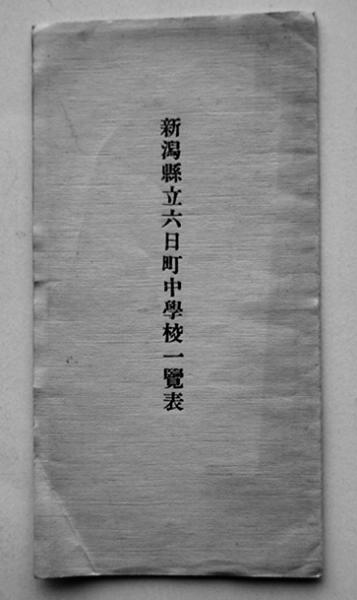 新潟縣立六日町中學校一覽表